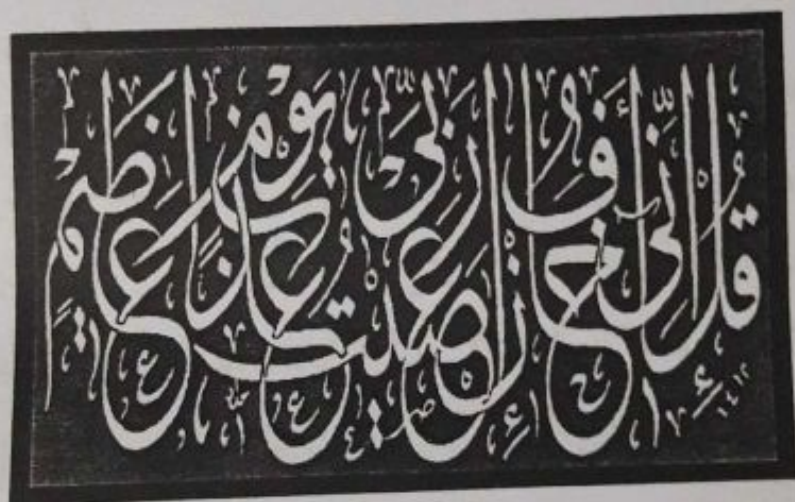 قُلْ إِنِّي أَخَافُ إِنْ عَصَيْتُ رَبِّي عَذَابَ يَوْمٍ عَظِيمٍ
١٤١٢